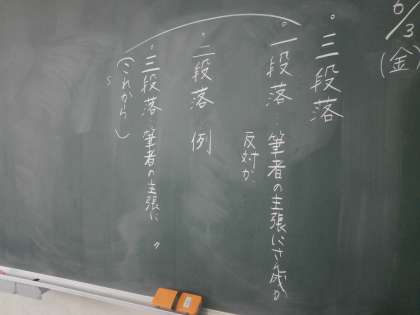 6/3
(金)
三段落
一段落…筆者の主張にさん成か
反対か
二段落 例
三段落 筆者の主張に 〃
(これから)